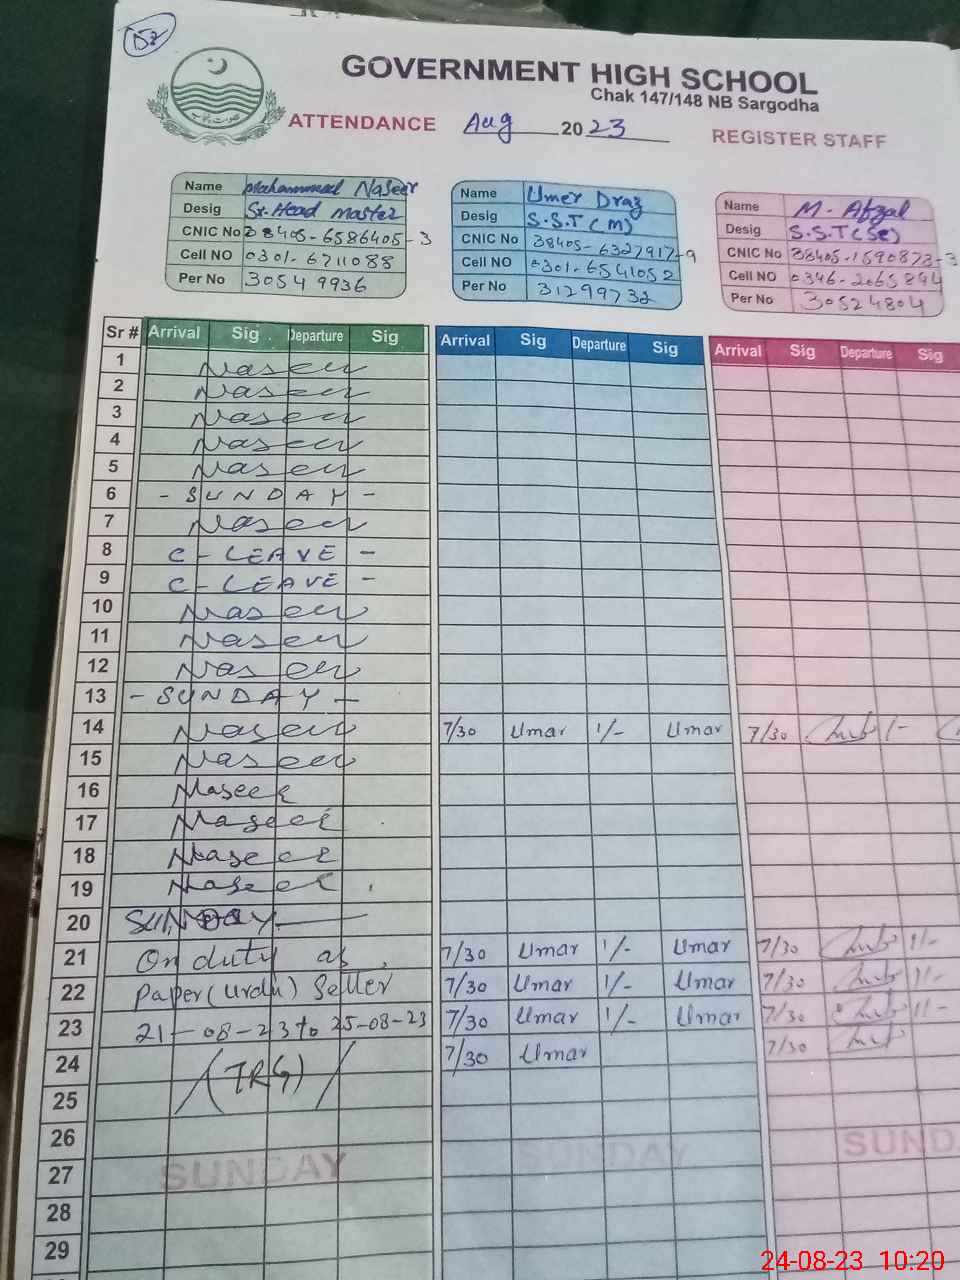 DZ
GOVERNMENT HIGH SCHOOL
Chak 147/148 NB Sargodha
ATTENDANCE Aug 2023 REGISTER STAFF
Name Mohammad Naseer
Desig Sr. Head Master
CNIC No 38405-6586405-3
Cell NO 0301-6711088
Per No 30549936
Name Umer Draz
Desig S.S.T (M)
CNIC No 38405-6327917-9
Cell NO 0301-6541052
Per No 31299732
Name M. Afzal
Desig S.S.T (Sc)
CNIC No 38405-1590873-3
Cell NO 0346-2065894
Per No 30524804
Sr # Arrival Sig Departure Sig Arrival Sig Departure Sig Arrival Sig Departure Sig
1 Naseer
2 Naseer
3 Naseer
4 Naseer
5 Naseer
6 - SUNDAY -
7 Naseer
8 C - LEAVE -
9 C - LEAVE -
10 Naseer
11 Naseer
12 Naseer
13 - SUNDAY -
14 Naseer 7/30 Umar 1/- Umar 7/30 1/-
15 Naseer
16 Naseer
17 Naseer
18 Naseer
19 Naseer
20 SUNDAY
21 On duty as 7/30 Umar 1/- Umar 7/30 1/-
22 Paper (Urdu) Setter 7/30 Umar 1/- Umar 7/30 1/-
23 21-08-23 to 25-08-23 7/30 Umar 1/- Umar 7/30 1/-
24 (TRG) 7/30 Umar 7/30
25
26
27 SUNDAY SUNDAY SUND
28
29
24-08-23 10:20